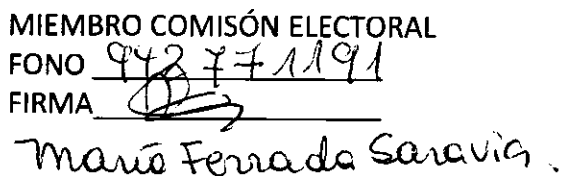 MIEMBRO COMISÓN ELECTORAL
FONO 942771191
FIRMA
María Ferrada Saravia.